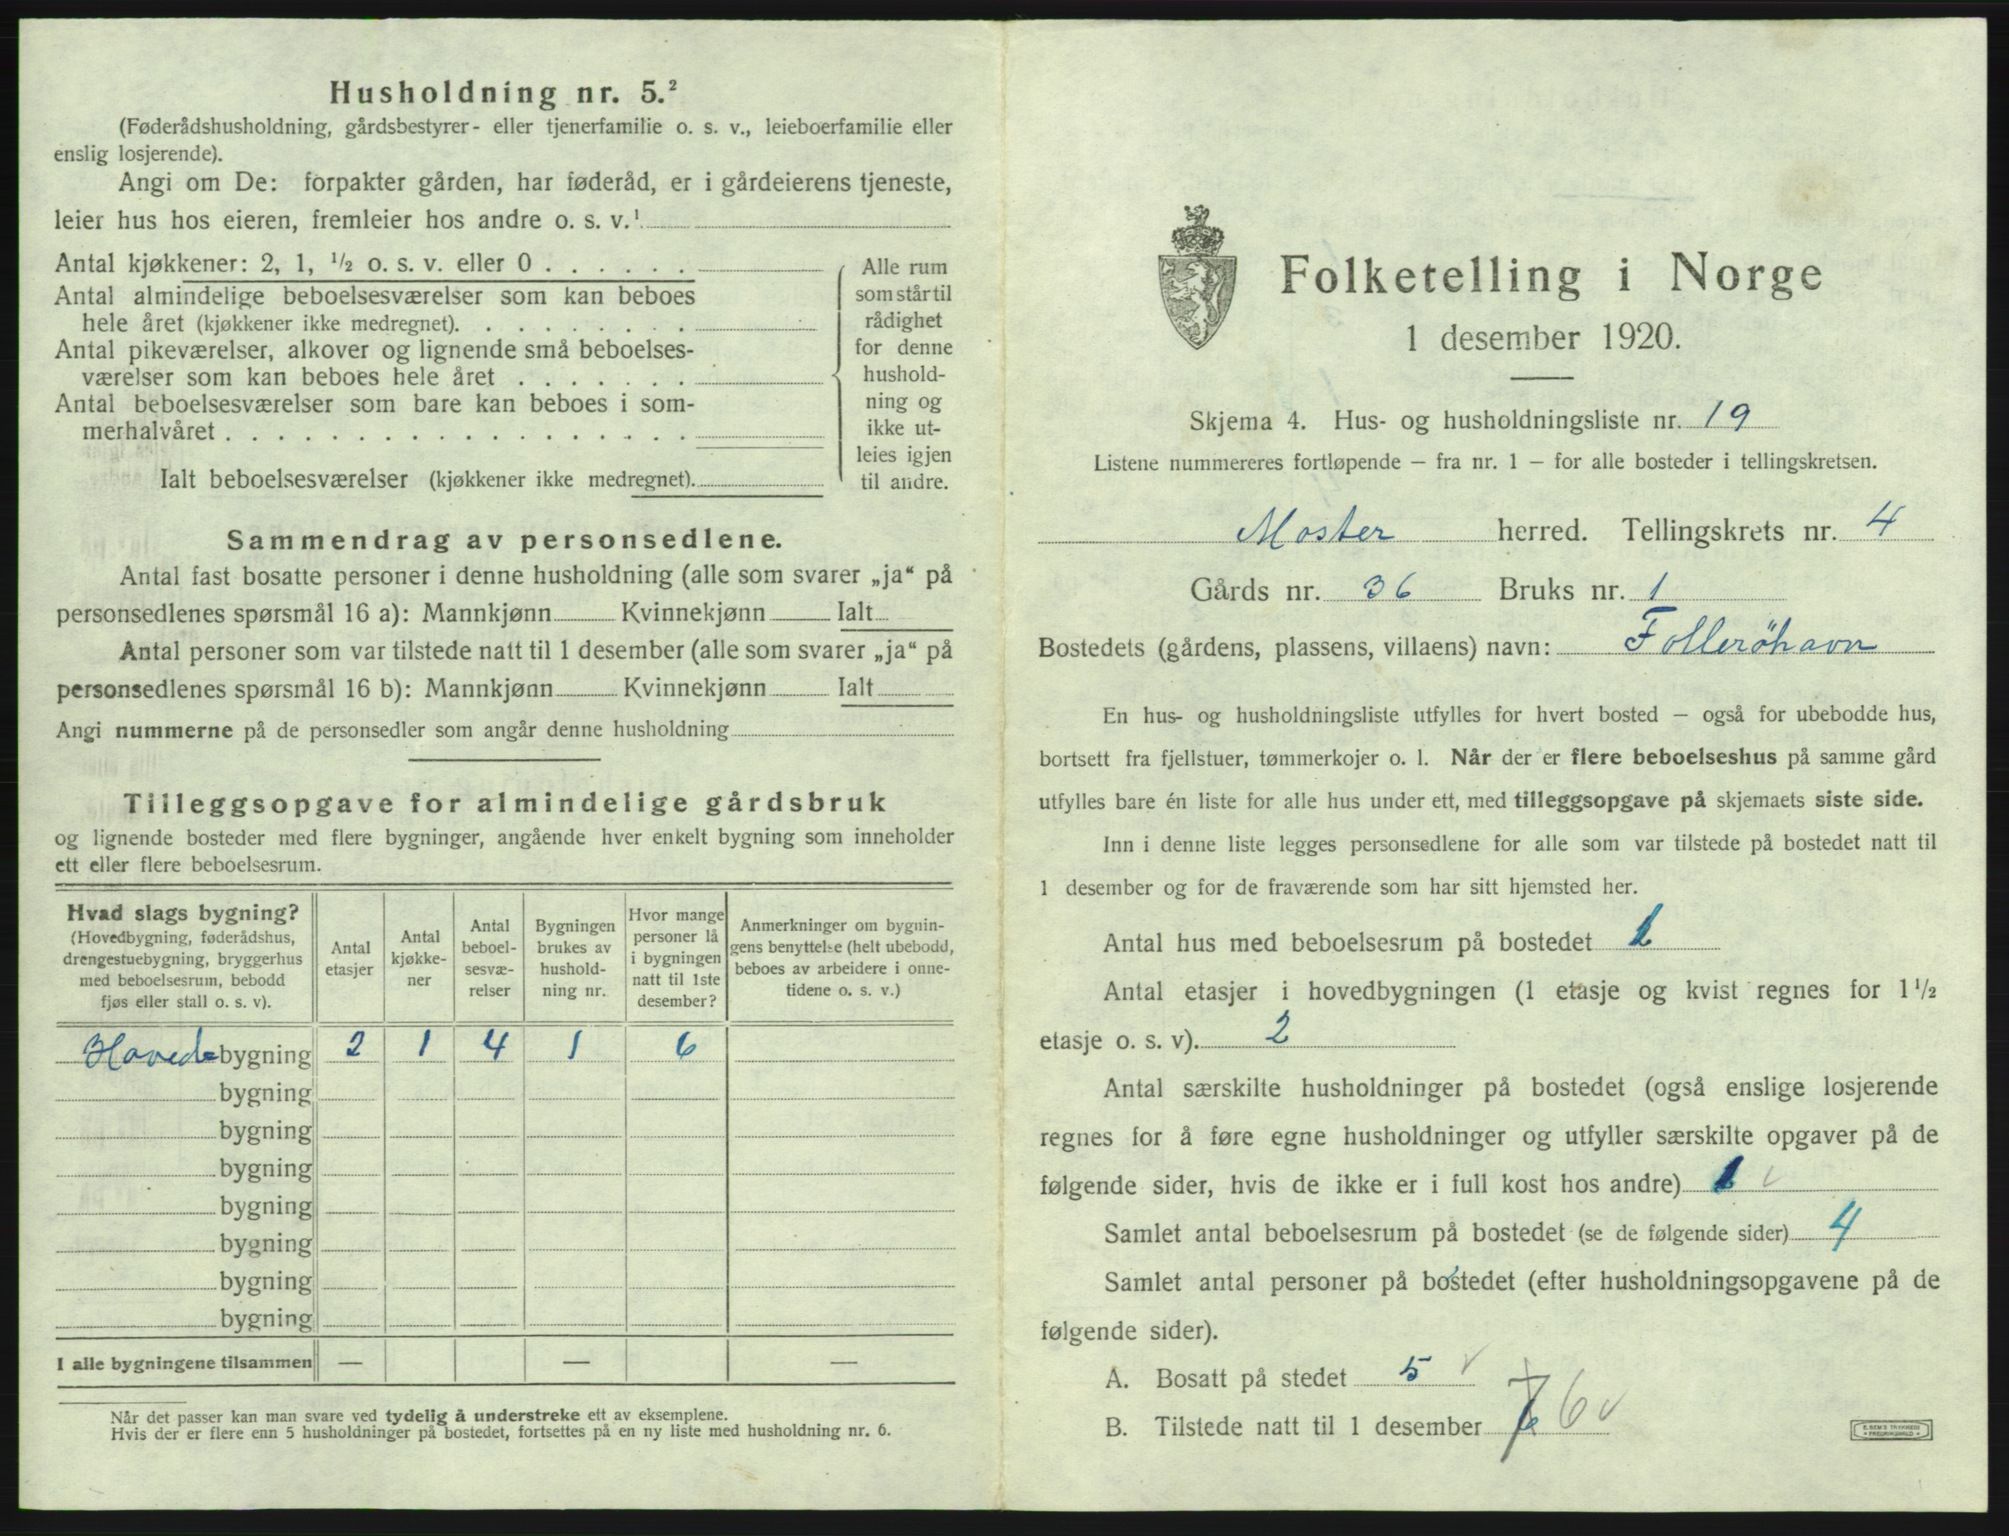 Husholdning nr. 5.²
(Føderådshusholdning, gårdsbestyrer- eller tjenerfamilie o. s. v., leieboerfamilie eller
enslig losjerende).
Angi om De: forpakter gården, har føderåd, er i gårdeierens tjeneste,
leier hus hos eieren, fremleier hos andre o. s. v.¹
Antal kjøkkener: 2, 1, ½ o. s. v. eller 0 . . . . . .
Antal almindelige beboelsesværelser som kan beboes
hele året (kjøkkener ikke medregnet). . . . . . . . .
Antal pikeværelser, alkover og lignende små beboelses-
værelser som kan beboes hele året . . . . . . .
Antal beboelsesværelser som bare kan beboes i som-
merhalvåret . . . . . . . . . . . . . . . . .
Ialt beboelsesværelser (kjøkkener ikke medregnet).
Alle rum
som står til
rådighet
for denne
hushold-
ning og
ikke ut-
leies igjen
til andre.
Sammendrag av personsedlene.
Antal fast bosatte personer i denne husholdning (alle som svarer „ja“ på
personsedlenes spørsmål 16 a): Mannkjønn Kvinnekjønn Ialt
Antal personer som var tilstede natt til 1 desember (alle som svarer „ja“ på
personsedlenes spørsmål 16 b): Mannkjønn Kvinnekjønn Ialt
Angi nummerne på de personsedler som angår denne husholdning
Tilleggsopgave for almindelige gårdsbruk
og lignende bosteder med flere bygninger, angående hver enkelt bygning som inneholder
ett eller flere beboelsesrum.
Hvad slags bygning?
(Hovedbygning, føderådshus,
drengestuebygning, bryggerhus
med beboelsesrum, bebodd
fjøs eller stall o. s. v).
Antal
etasjer
Antal
kjøkke-
ner
Antal
beboel-
sesvæ-
relser
Bygningen
brukes av
hushold-
ning nr.
Hvor mange
personer lå
i bygningen
natt til 1ste
desember?
Anmerkninger om bygnin-
gens benyttelse (helt ubebodd,
beboes av arbeidere i onne-
tidene o. s. v.)
Hovedbygning 2 1 4 1 6
bygning
bygning
bygning
bygning
bygning
bygning
bygning
I alle bygningene tilsammen — — —
Når det passer kan man svare ved tydelig å understreke ett av eksemplene.
Hvis der er flere enn 5 husholdninger på bostedet, fortsettes på en ny liste med husholdning nr. 6.
Folketelling i Norge
1 desember 1920.
Skjema 4. Hus- og husholdningsliste nr. 19
Listene nummereres fortløpende – fra nr. 1 – for alle bosteder i tellingskretsen.
Moster herred. Tellingskrets nr. 4
Gårds nr. 36 Bruks nr. 1
Bostedets (gårdens, plassens, villaens) navn: Follerøhavn
En hus- og husholdningsliste utfylles for hvert bosted – også for ubebodde hus,
bortsett fra fjellstuer, tømmerkojer o. l. Når der er flere beboelseshus på samme gård
utfylles bare én liste for alle hus under ett, med tilleggsopgave på skjemaets siste side.
Inn i denne liste legges personsedlene for alle som var tilstede på bostedet natt til
1 desember og for de fraværende som har sitt hjemsted her.
Antal hus med beboelsesrum på bostedet 1
Antal etasjer i hovedbygningen (1 etasje og kvist regnes for 1½
etasje o. s. v). 2
Antal særskilte husholdninger på bostedet (også enslige losjerende
regnes for å føre egne husholdninger og utfyller særskilte opgaver på de
følgende sider, hvis de ikke er i full kost hos andre) 1 v
Samlet antal beboelsesrum på bostedet (se de følgende sider) 4
Samlet antal personer på bostedet (efter husholdningsopgavene på de
følgende sider).
A. Bosatt på stedet 5 v
B. Tilstede natt til 1 desember 6 v